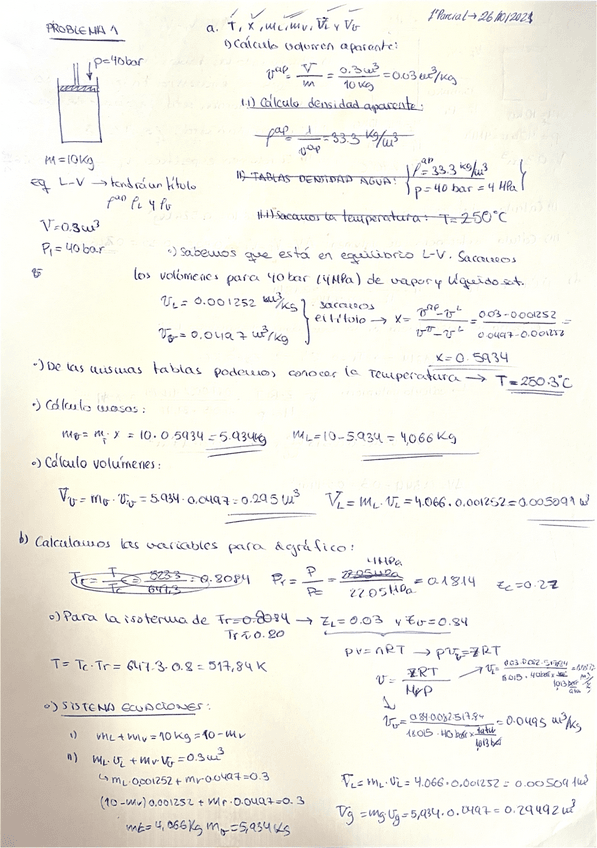 1ºParcial → 26/10/2023
PROBLEMA 1
a. T, x, mL, mv, VL y Vv
1) Cálculo volumen aparente:
p=40bar
v^ap = V/m = 0.3m³/10kg = 0.03 m³/kg
1.1) Cálculo densidad aparente:
ρ^ap = 1/v^ap = 33.3 kg/m³
m = 10kg
eq L-V → tendrá un título
ρ^ap ρL y ρv
II) TABLAS DENSIDAD AGUA: { ρ^ap = 33.3 kg/m³
p = 40 bar = 4 MPa }
II.1) Sacamos la temperatura: T=250°C
V=0.3m³
P1 = 40bar
·) Sabemos que está en equilibrio L-V. Sacamos
los volúmenes para 40bar (4MPa) de vapor y líquido sat.
vL = 0.001252 m³/kg
vv = 0.0497 m³/kg
} sacamos el título → x = (v^ap - v^L)/(v^v - v^L) = (0.03-0.001252)/(0.0497-0.001252) =
x = 0.5934
·) De las mismas tablas podemos conocer la Temperatura → T=250.3°C
·) Cálculo masas:
mv = mT · x = 10 · 0.5934 = 5.934kg mL = 10-5.934 = 4,066 Kg
·) Cálculo volúmenes:
Vv = mv · vv = 5.934 · 0.0497 = 0.295 m³ VL = mL · vL = 4.066 · 0.001252 = 0.005091 m³
b) Calculamos las variables para el gráfico:
Tr = T/Tc = 523.3/647.3 = 0.8084 Pr = P/Pc = 4MPa/22.05MPa = 0.1814 zc = 0.27
·) Para la isoterma de Tr=0.8084 → ZL = 0.03 y Zv = 0.84
Tr ≈ 0.80
pv = nRT → pv = ZRT
T = Tc · Tr = 647.3 · 0.8 = 517,84 K
v = ZRT/M·P
vv = 0.84·0.082·517.84 / 18.015 · 40bar · 1atm/1,013bar = 0.0495 m³/kg
·) SISTEMA ECUACIONES:
I) mL + mv = 10kg = 10 - mv
II) mL · vL + mv · vv = 0.3m³
↳ mL · 0.001252 + mv · 0.0497 = 0.3
(10-mv) 0.001252 + mv · 0.0497 = 0.3
mL = 4,066 Kg mv = 5,934 Kg
VL = mL · vL = 4.066 · 0.001252 = 0.005091 m³
Vg = mg vg = 5,934 · 0.0497 = 0.29492 m³